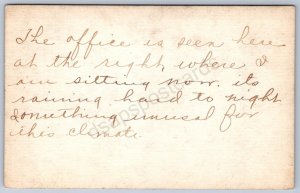 The office is seen here
at the right, where I
am sitting now. its
raining hard to night
something unusal for
this climate